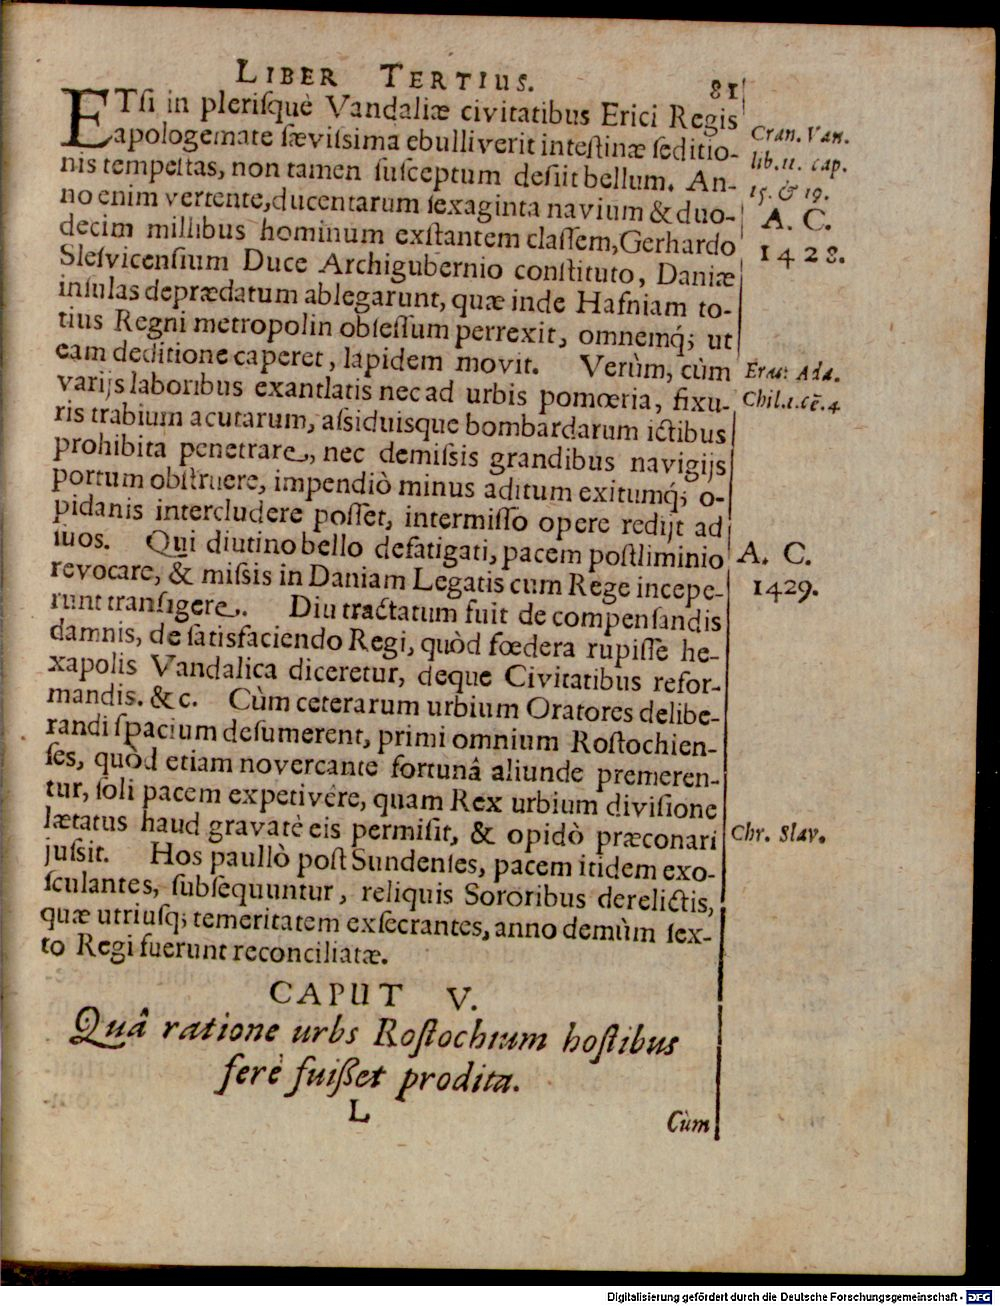 LIBER TERTIUS. 81
ETſi in pleriſquè Vandaliæ civitatibus Erici Regis
apologemate ſæviſsima ebulliverit inteſtinæ ſeditio-
nis tempeſtas, non tamen ſuſceptum deſiit bellum. An-
no enim vertente, ducentarum ſexaginta navium & duo-
decim millibus hominum exſtantem claſſem, Gerhardo
Sleſvicenſium Duce Archigubernio conſtituto, Daniæ
inſulas deprædatum ablegarunt, quæ inde Hafniam to-
tius Regni metropolin obſeſſum perrexit, omnemq́; ut
eam deditione caperet, lapidem movit. Verùm, cùm
varijs laboribus exantlatis nec ad urbis pomœria, fixu-
ris trabium acutarum, aſsiduisque bombardarum ictibus
prohibita penetrare, nec demiſsis grandibus navigijs
portum obſtruere, impendiò minus aditum exitumq́; o-
pidanis intercludere poſſet, intermiſſo opere redijt ad
ſuos. Qui diutino bello defatigati, pacem poſtliminio
revocare, & miſsis in Daniam Legatis cum Rege incepe-
runt tranſigere. Diu tractatum fuit de compenſandis
damnis, de ſatisfaciendo Regi, quòd fœdera rupiſſe he-
xapolis Vandalica diceretur, deque Civitatibus refor-
mandis. &c. Cùm ceterarum urbium Oratores delibe-
randi ſpacium deſumerent, primi omnium Roſtochien-
ſes, quòd etiam novercante fortunâ aliunde premeren-
tur, ſoli pacem expetivére, quam Rex urbium diviſione
lætatus haud gravatè eis permiſit, & opidò præconari
juſsit. Hos paullò poſt Sundenſes, pacem itidem exo-
ſculantes, ſubſequuntur, reliquis Sororibus derelictis,
quæ utriuſq; temeritatem exſecrantes, anno demùm ſex-
to Regi fuerunt reconciliatæ.
CAPUT V.
Quâ ratione urbs Roſtochium hoſtibus
ferè fuißet prodita.
L
Cùm
Cran. Van.
lib. 11. cap.
15. & 19.
A. C.
1428.
Eraſ: Ada.
Chil.1.cē.4
A. C.
1429.
Chr. Slav.
Digitalisierung gefördert durch die Deutsche Forschungsgemeinschaft - DFG